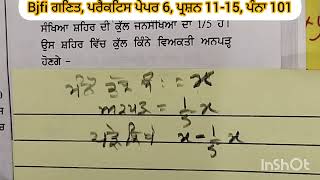 Bjfii ਗਣਿਤ, ਪਰੈਕਟਿਸ ਪੇਪਰ 6, ਪ੍ਰਸ਼ਨ 11-15, ਪੰਨਾ 101
ਸੰਖਿਆ ਸ਼ਹਿਰ ਦੀ ਕੁੱਲ ਜਨਸੰਖਿਆ ਦਾ 1/5 ਹੈ।
ਉਸ ਸ਼ਹਿਰ ਵਿੱਚ ਕੁੱਲ ਕਿੰਨੇ ਵਿਅਕਤੀ ਅਨਪੜ੍ਹ
ਹੋਣਗੇ -
ਅਨਪੜ = 1/5 x
x - 1/5 x
InShOt